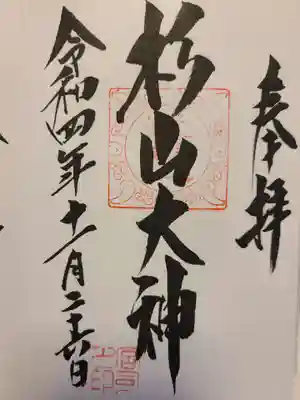 奉拝
杉山大神
令和四年十一月二十六日